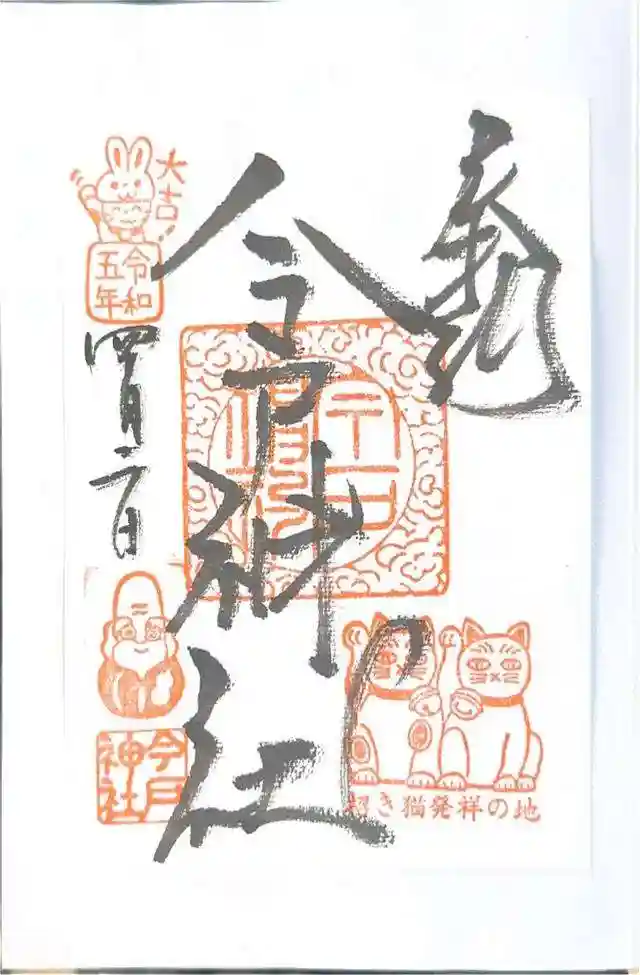 奉拝
今戸神社
招き猫発祥の地
大吉!!
令和
五年
四月二日
今戸
神社